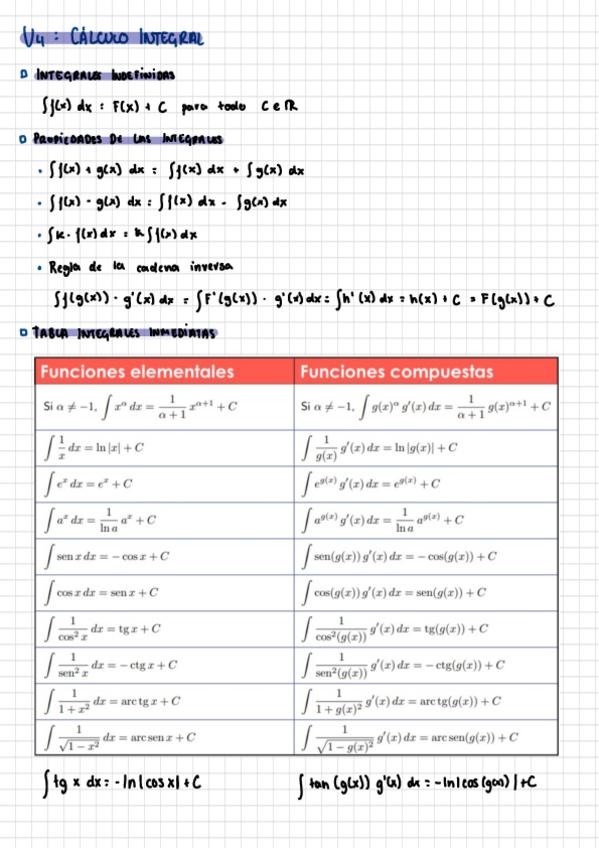 U4 : CÁLCULO INTEGRAL
INTEGRALES INDEFINIDAS
∫f(x) dx = F(x) + C para todo C ∈ ℝ
PROPIEDADES DE LAS INTEGRALES
• ∫f(x) + g(x) dx = ∫f(x) dx + ∫g(x) dx
• ∫f(x) - g(x) dx = ∫f(x) dx - ∫g(x) dx
• ∫k · f(x) dx = k ∫f(x) dx
• Regla de la cadena inversa
∫f(g(x)) · g'(x) dx = ∫F'(g(x)) · g'(x) dx = ∫h'(x) dx = h(x) + C = F(g(x)) + C
TABLA INTEGRALES INMEDIATAS
Funciones elementales Funciones compuestas
Si α ≠ −1, ∫ x^α dx = 1/(α+1) x^(α+1) + C Si α ≠ −1, ∫ g(x)^α g′(x) dx = 1/(α+1) g(x)^(α+1) + C
∫ 1/x dx = ln |x| + C ∫ 1/g(x) g′(x) dx = ln |g(x)| + C
∫ e^x dx = e^x + C ∫ e^g(x) g′(x) dx = e^g(x) + C
∫ a^x dx = 1/(ln a) a^x + C ∫ a^g(x) g′(x) dx = 1/(ln a) a^g(x) + C
∫ sen x dx = − cos x + C ∫ sen(g(x)) g′(x) dx = − cos(g(x)) + C
∫ cos x dx = sen x + C ∫ cos(g(x)) g′(x) dx = sen(g(x)) + C
∫ 1/(cos² x) dx = tg x + C ∫ 1/(cos²(g(x))) g′(x) dx = tg(g(x)) + C
∫ 1/(sen² x) dx = − ctg x + C ∫ 1/(sen²(g(x))) g′(x) dx = − ctg(g(x)) + C
∫ 1/(1 + x²) dx = arc tg x + C ∫ 1/(1 + g(x)²) g′(x) dx = arc tg(g(x)) + C
∫ 1/√(1 − x²) dx = arc sen x + C ∫ 1/√(1 − g(x)²) g′(x) dx = arc sen(g(x)) + C
∫ tg x dx = - ln |cos x| + C ∫ tan (g(x)) g'(x) dx = - ln |cos (g(x)) | + C